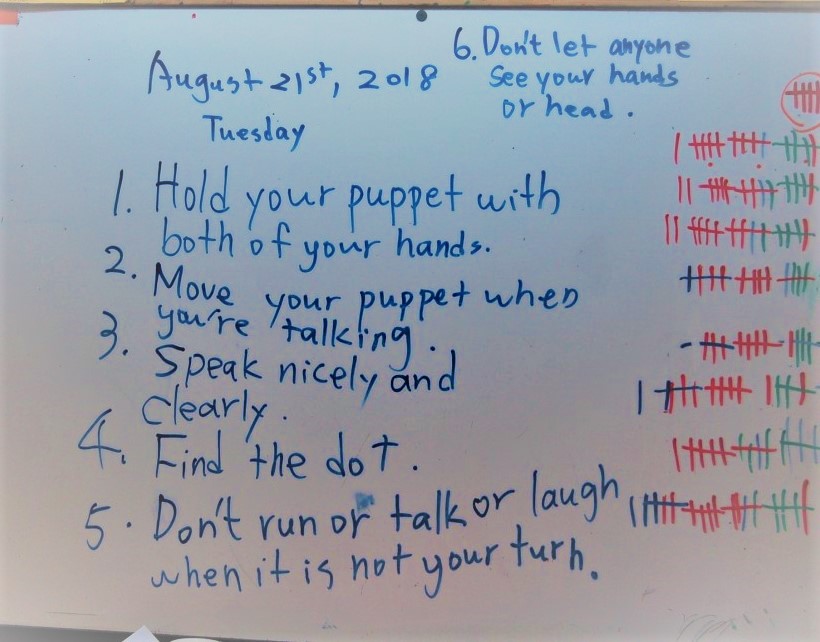 August 21st, 2018
Tuesday
1. Hold your puppet with
both of your hands.
2. Move your puppet when
you're talking.
3. Speak nicely and
clearly.
4. Find the dot.
5. Don't run or talk or laugh
when it is not your turn.
6. Don't let anyone
See your hands
or head.